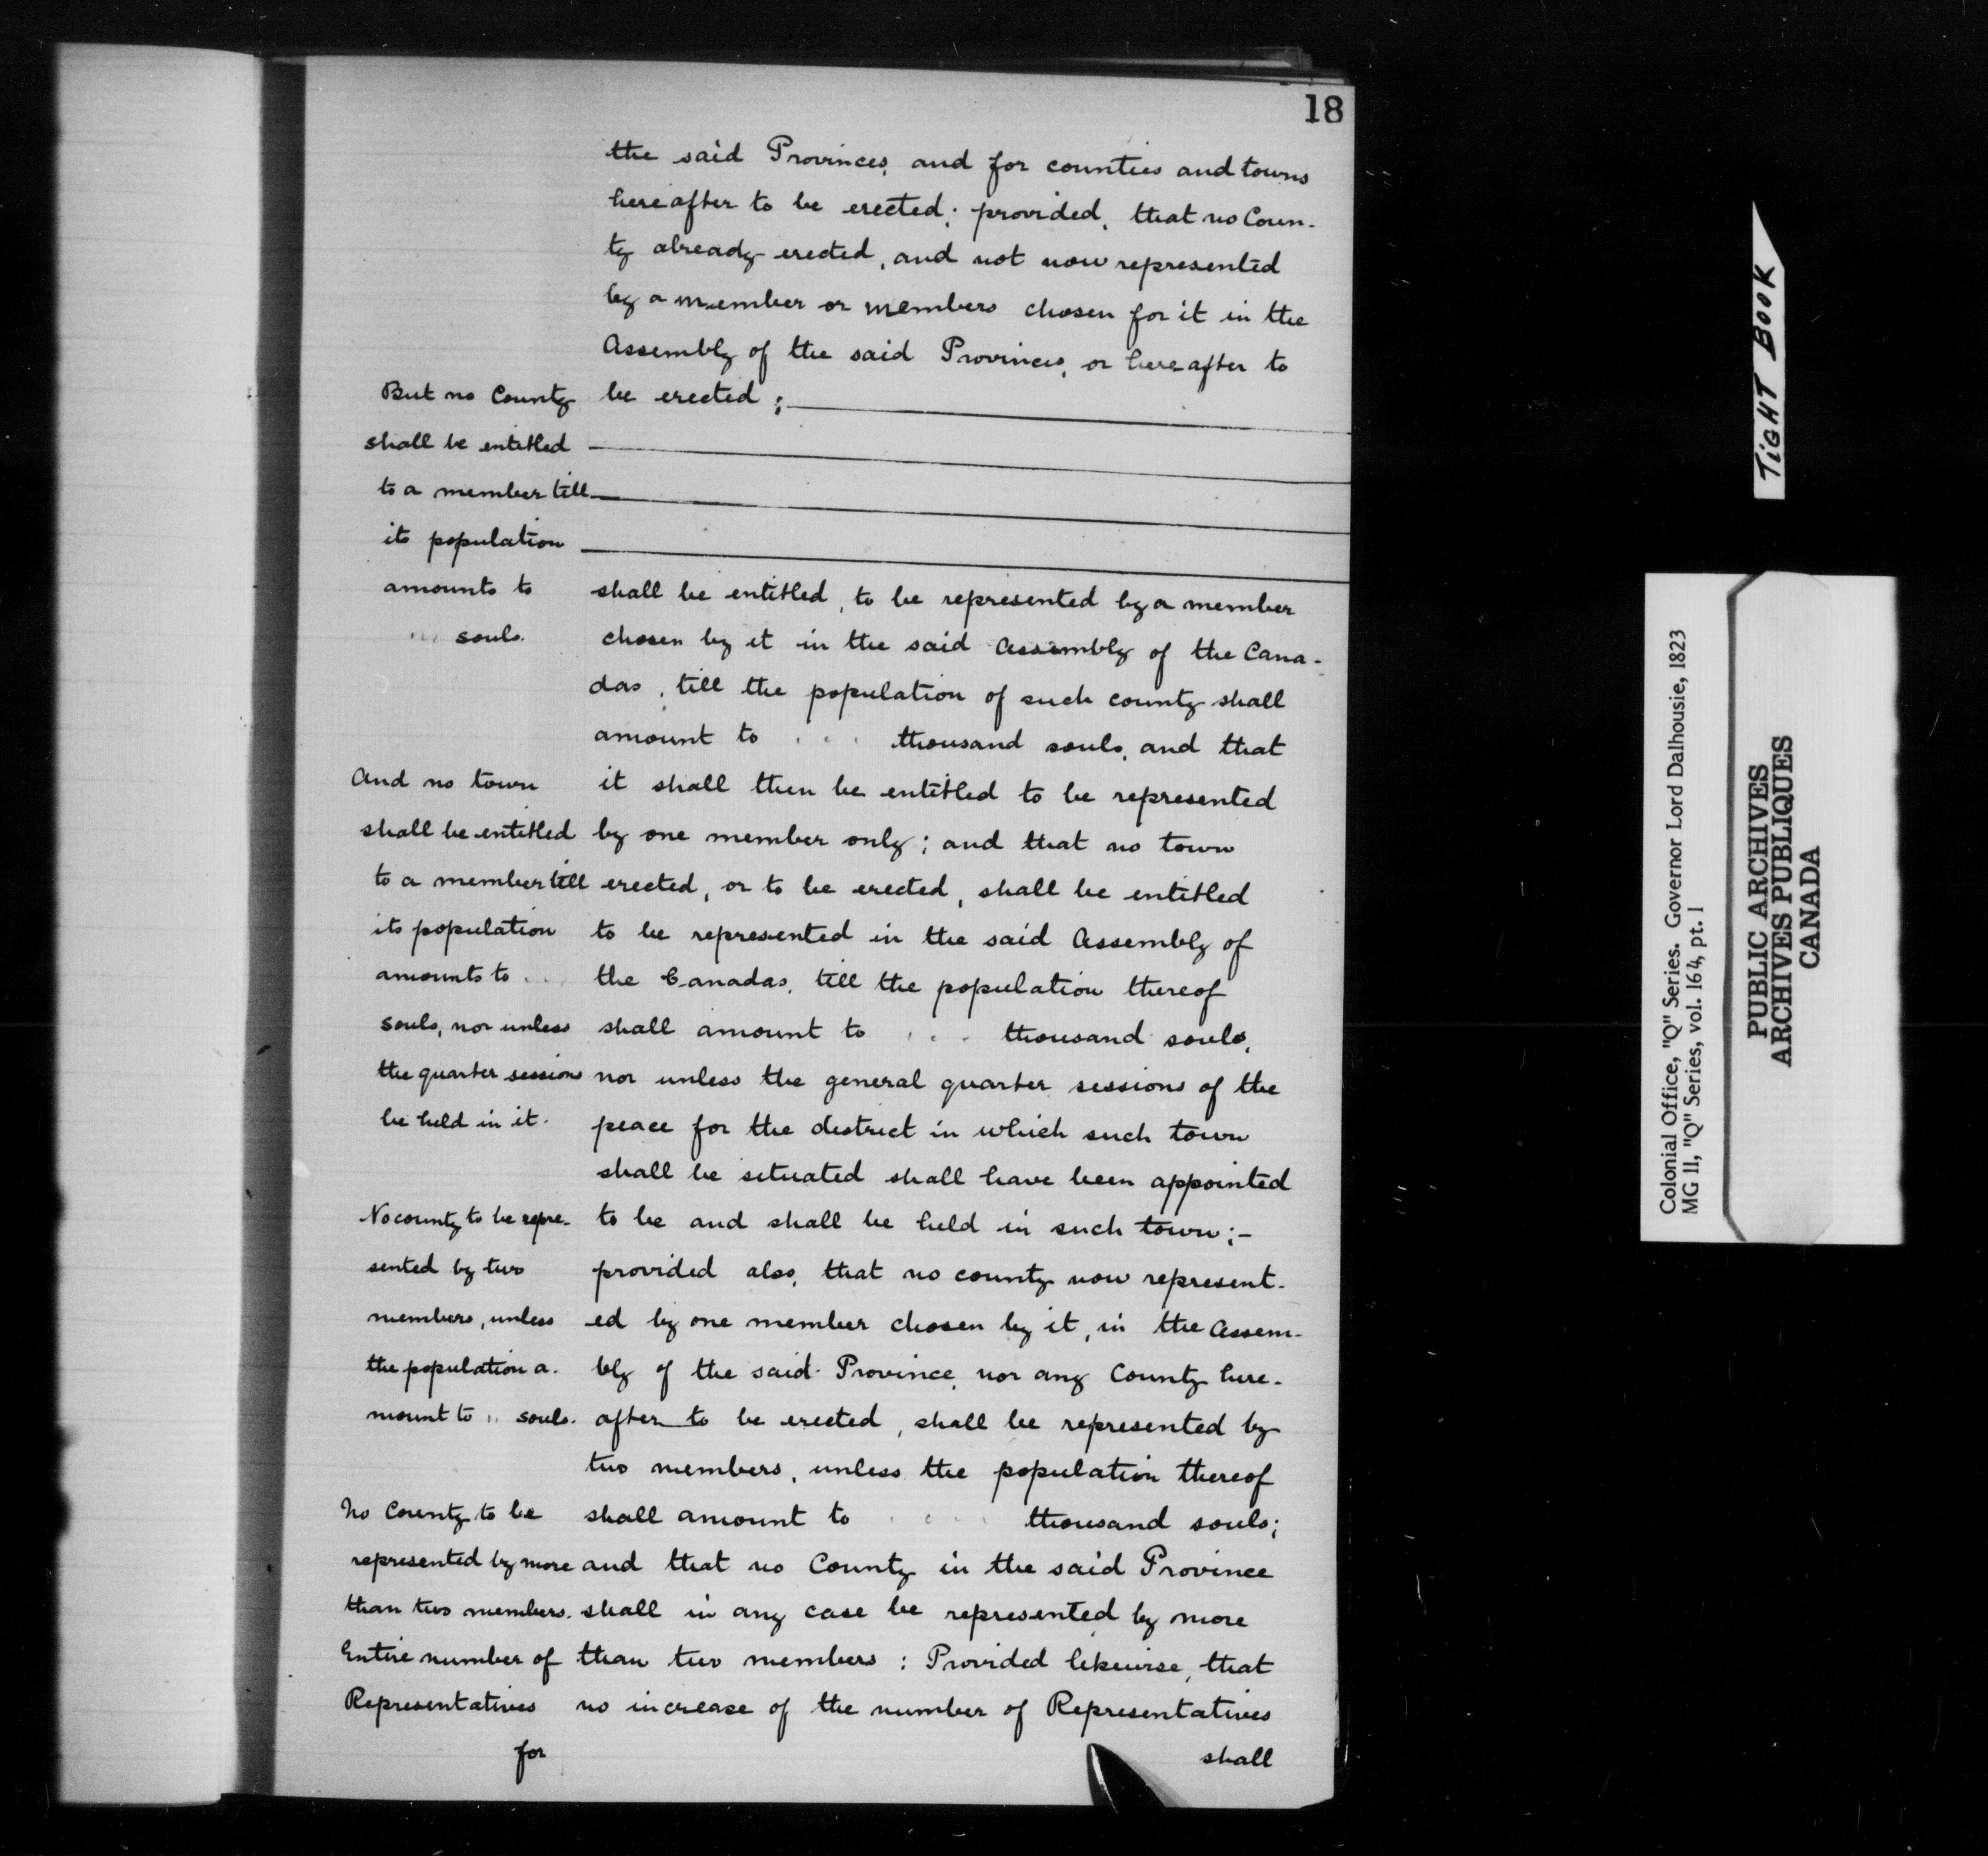 18
the said Provinces, and for counties and towns
hereafter to be erected; provided, that no Coun-
ty already erected, and not now represented
by a member or members chosen for it in the
Assembly of the said Provinces, or hereafter to
be erected;
But no County
shall be entitled
to a member till
its population
amounts to
... souls.
shall be entitled, to be represented by a member
chosen by it in the said Assembly of the Cana-
das, till the population of such county shall
amount to . . . thousand souls, and that
it shall then be entitled to be represented
by one member only; and that no town
erected, or to be erected, shall be entitled
to be represented in the said Assembly of
the Canadas, till the population thereof
shall amount to . . . thousand souls,
nor unless the general quarter sessions of the
peace for the district in which such town
shall be situated shall have been appointed
to be and shall be held in such town;-
And no town
shall be entitled
to a member till
its population
amounts to ...
souls, nor unless
the quarter sessions
be held in it.
provided also, that no county now represent-
ed by one member chosen by it, in the Assem-
bly of the said Province, nor any County here-
after to be erected, shall be represented by
two members, unless the population thereof
shall amount to . . . . thousand souls;
No county to be repre-
sented by two
members, unless
the population a-
mount to .. souls.
and that no County in the said Province
shall in any case be represented by more
than two members: Provided likewise, that
no increase of the number of Representatives
shall
No County to be
represented by more
than two members.
Entire number of
Representatives
for
TIGHT BOOK
Colonial Office, "Q" Series. Governor Lord Dalhousie, 1823
MG 11, "Q" Series, vol. 164, pt. 1
PUBLIC ARCHIVES
ARCHIVES PUBLIQUES
CANADA